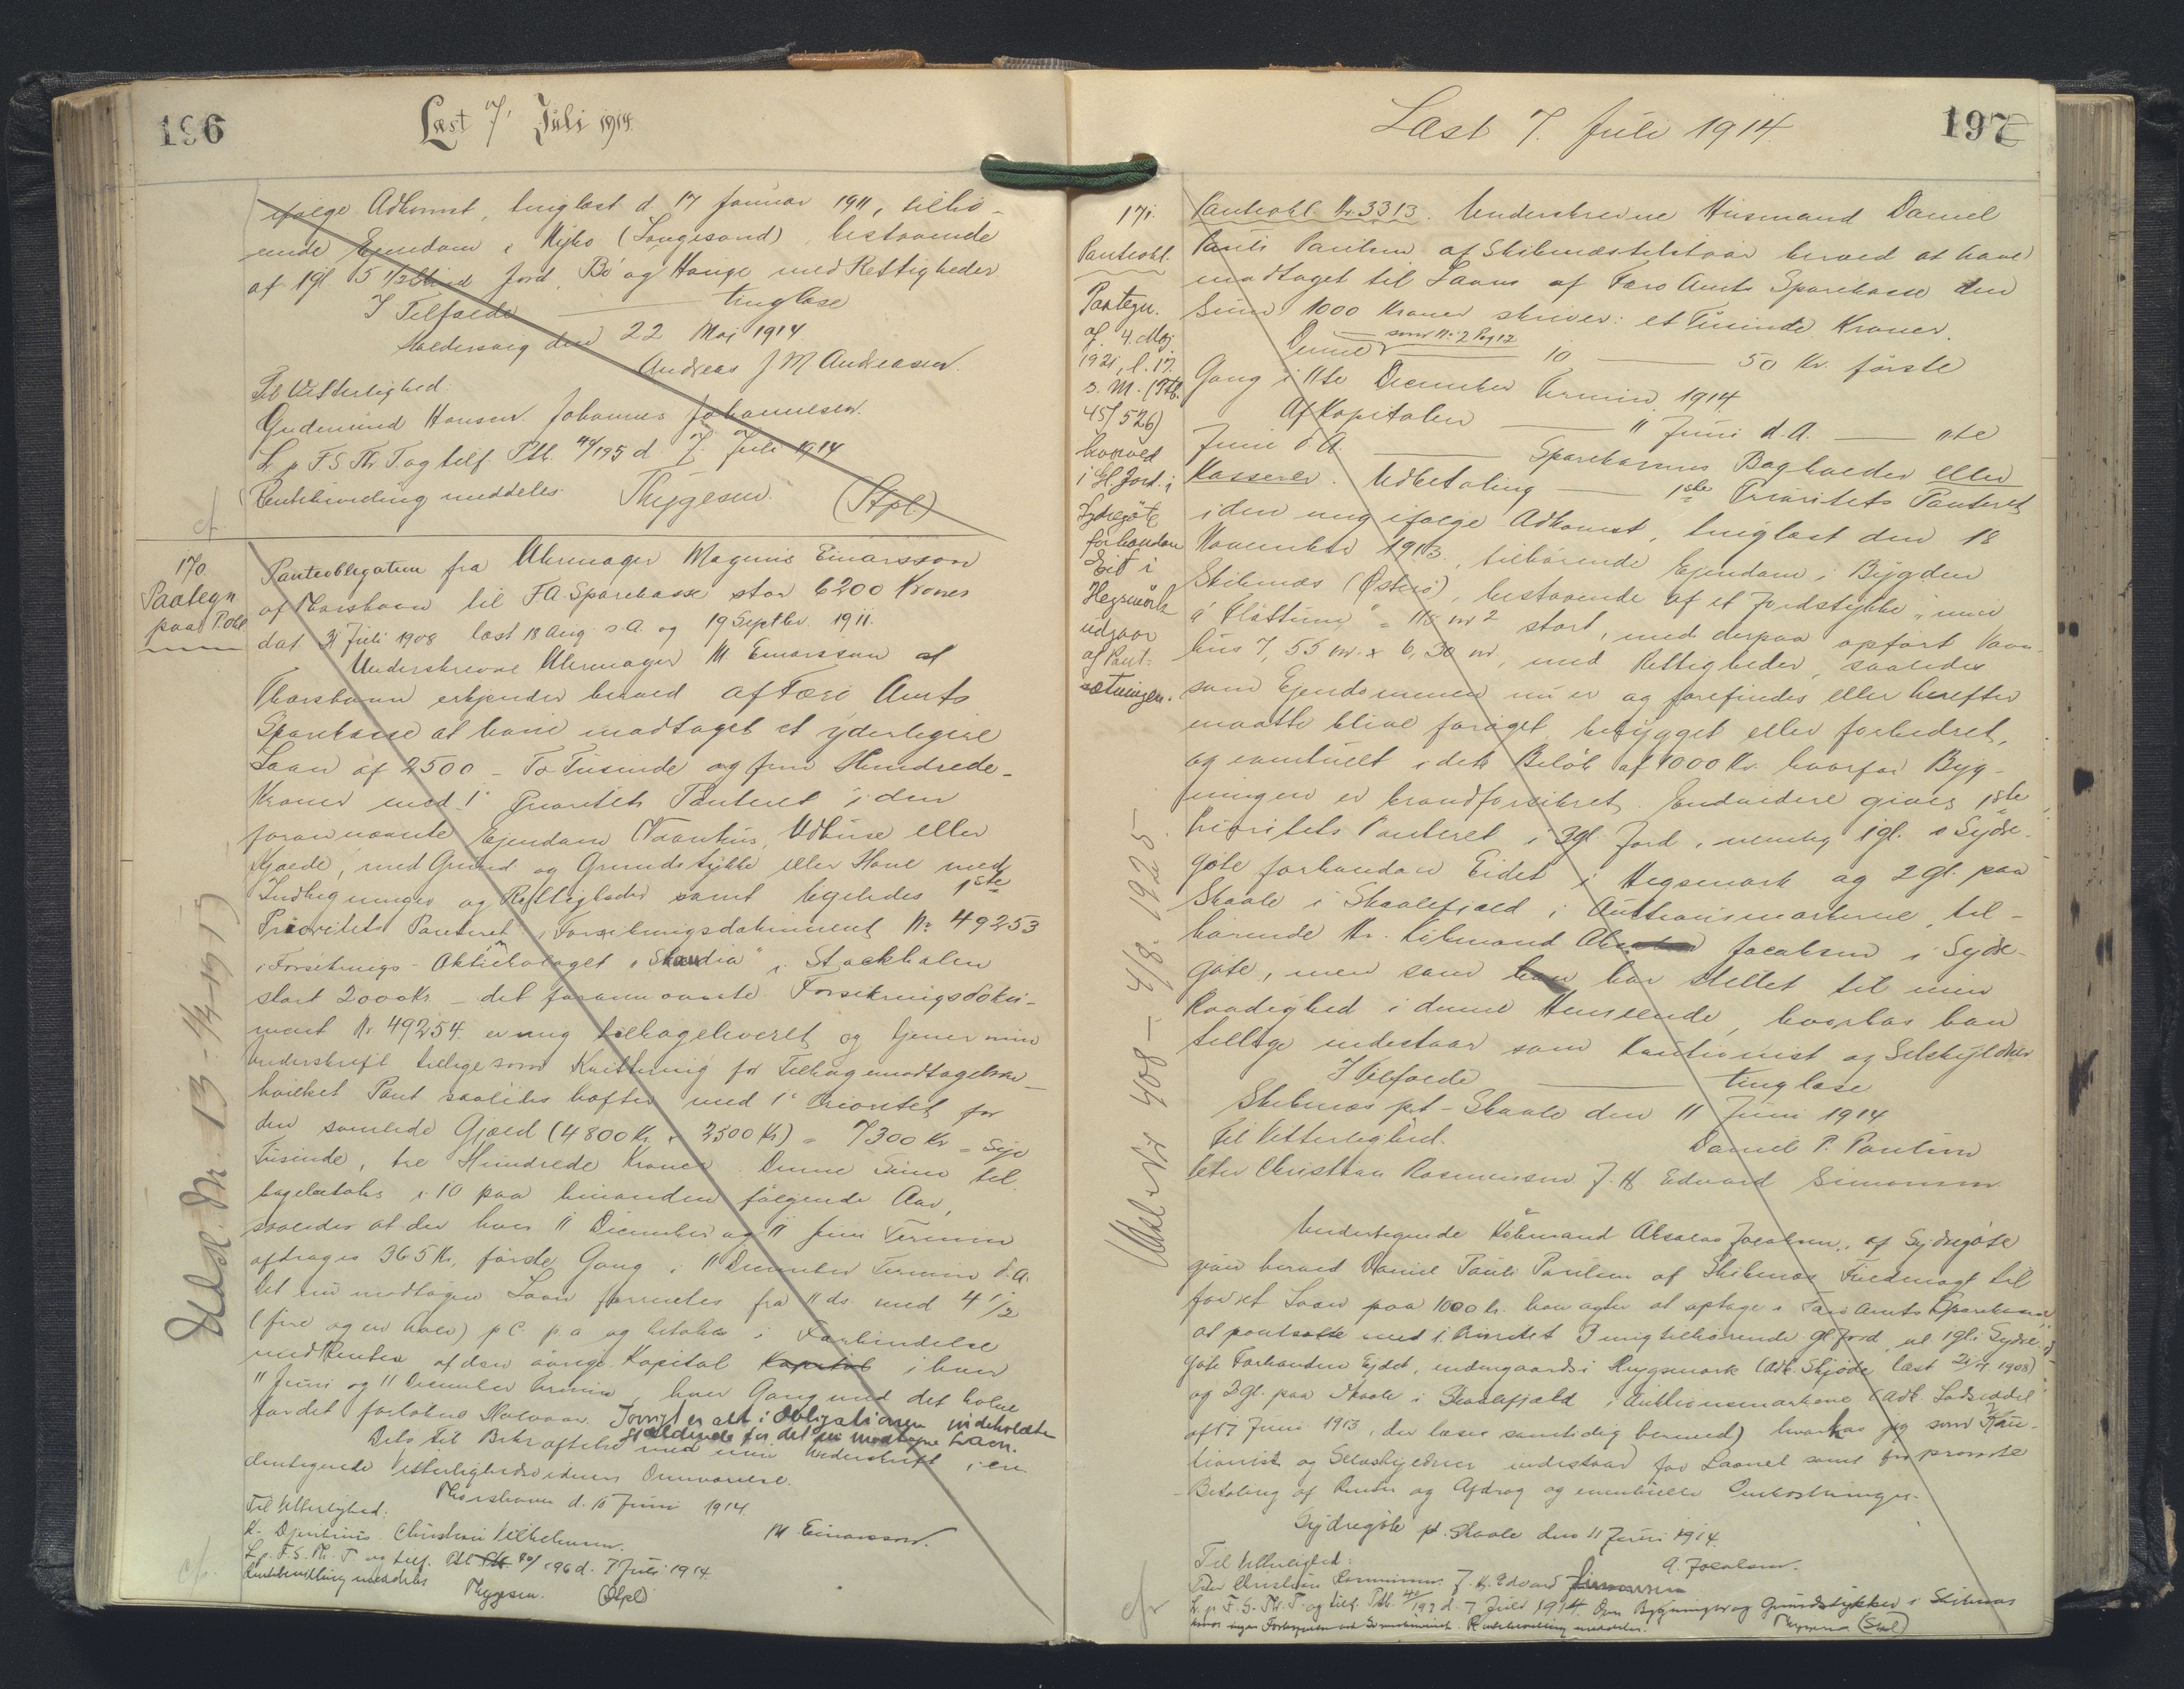 196
Læst 7' Juli 1914.
ifølge Adkomst, tinglæst d. 17 Januar 1911, tilhø-
rende Ejendom i (Langesand) bestaaende
af 1 gl 5 1/2 Skind Jord, Bø og Hauge med Rettigheder
I Tilfælde ——— tinglæse
Haldersvig den 22 Maj 1914
Andreas J M Andreasen.
Til Vitterlighed:
Gudmund Hansen. Johannes Johannesen.
L. p. F. S. Th. T. og tilf. Ptb. 40/195 d 7 Juli 1914
Rentebevilling meddeles. Thygesen. (Stpl.)
cf
170.
Paategn
paa P.obl
Panteobligation fra Uhrmager Magnus Einarsson
af Thorshavn til F.A. Sparekasse stor 6200 Kroner
dat. 31 Juli 1908 læst 18 Aug. s.A. og 19 Septbr. 1911.
Underskrevne Uhrmager M Einarsson af
Thorshavn erkjender herved af Færø Amts
Sparekasse at have modtaget et yderligere
Laan af 2500 - To Tusinde og fem Hundrede -
Kroner mod 1' Prioritets Panteret i den
forannævnte Ejendom (Vaanhus, Udhuse eller
Kjælde, med Grund og Grundstykke eller Have med
Indhegninger og Rettigheder samt ligeledes 1ste
Prioritets Panteret i Forsikringsdokument Nr. 49253
i Forsikrings-Aktiebolaget "Skandia" i Stockholm
stort 2000 Kr. - det forannævnte Forsikringsdoku-
ment Nr. 49254 er mig tilbageleveret og tjener min
Underskrift tillige som Kvittering for Tilbagemodtagelsen -
hvilket Pant saaledes hæfter med 1' Prioritet for
den samlede Gjæld (4800 Kr. + 2500 Kr) = 7300 Kr = Syv
Tusinde, tre Hundrede Kroner. Denne Sum til-
bagebetales i 10 paa hinanden følgende Aar,
saaledes at der hver 11 December og 11 Juni Termin
afdrages 365 Kr, første Gang i 11 December Termin d.A.
Det nu modtagne Laan forrentes fra 11 ds. med 4 1/2
(fire og en halv) p C. p. a og betales i Forbindelse
med Renten af den øvrige Kapital Kapital i hver
11 Juni og 11 December Termin, hver Gang med det halve
for det forløbne Halvaar. Iøvrigt er alt i Obligationen indeholdte
gjældende for det nu modtagne Laan.
Dets til Bekræftelse med min Underskrift i en
dertegnede Vitterlighedsvidners Overværelse.
Thorshavn d. 10 Juni 1914.
M Einarsson.
Til Vitterlighed:
K. Djurhuus. Christian Vilhelmsen.
L. p. F. S. Th. T. og tilf. Ptb. 40/196 d. 7 Juli 1914.
Rentebevilling meddeles
Thygesen. (Stpl)
cfr.
Udsl. Nr. 13 - 1/4-1917
Læst 7. Juli 1914.
197
171.
Panteobl.
Paategn.
af 4. Maj
1921, l. 17.
s. M. (Ptb.
45/526)
hvorved
1 Gl. Jord i
Sydregøte
forhandan
Eit i
Hegsmørk
udgaar
af Pant-
sætningen.
Panteobl. Nr. 3313. Underskrevne Husmand Daniel
Pauli Paulsen af Skibenæs tilstaar herved at have
modtaget til Laans af Færø Amts Sparekasse den
Sum 1000 Kroner skriver: et Tusinde Kroner.
Denne — som Nr. 7 Pag 12 — 10 ——— 50 Kr. første
Gang i 11te December Termin 1914
Af Kapitalen ——— 11 Juni d. A. —— 11te
Juni d. A. ——— Sparekassens Bogholder eller
Kasserer. Udbetaling ——— 1ste Prioritets Panteret
i den mig ifølge Adkomst, tinglæst den 18
November 1913, tilhørende Ejendom i Bygden
Skibenæs (Østerø), bestaaende af et Jordstykke "inni
á Fløttinum" = 118 m2 stort, med derpaa opført Vaan-
hus 7,55 m. x 6,30 m, med Rettigheder, saaledes
som Ejendommen nu er og forefindes eller herefter
maatte blive forøget, bebygget eller forbedret,
og eventuelt i dets Beløb af 1000 Kr. hvorfor Byg-
ningen er brandforsikret. Endvidere gives 1ste
Prioritets Panteret i 3 gl. Jord, nemlig 1 gl. i Sydre-
gøte forhandan Eidet i Hegsmørk og 2 gl. paa
Skaale i Skaalefjæld i Auktionsmarkerne, til-
hørende Hr. Købmand Absalon Jacobsen i Sydre-
gøte, men som han har stillet til min
Raadighed i denne Henseende, hvorhos han
tillige indestaar som Kautionist og Selvskyldner
I Tilfælde ——— tinglæse
Skibenæs pt - Skaale den 11 Juni 1914
Til Vitterlighed. Daniel P. Paulsen
Peter Christian Rasmussen J. H. Edvard Simonsen
Undertegnede Købmand Absalon Jacobsen, af Sydregøte
giver herved Daniel Pauli Paulsen af Skibenæs Fuldmagt til
for et Laan paa 1000 kr. han agter at optage i Færø Amts Sparekasse,
at pantsætte med 1. Prioritet 3 mig tilhørende gl Jord, nl. 1 gl. i Sydre-
gøte Forhandan Ejdet, indengaards i Heygsmørk (Adk. Skjøde læst 21/4 1908)
og 2 gl. paa Skaale i Skaalefjæld i Auktionsmarkerne (Adk. Lodseddel
af 17 Juni 1913, der læses samtidig hermed) hvorhos jeg som Kau-
tionist og Selvskyldner indestaar for Laanet samt for promte
Betaling af Renter og Afdrag og eventuelle Omkostninger.
Sydregøte pt. Skaale den 11 Juni 1914.
Til Vitterlighed: A. Jacobsen.
Peter Christian Rasmussen. J. H. Edvard Simonsen
L. p. F. S. Th. T. og tilf. Ptb. 40/197 d. 7 Juli 1914. Om Bygninger og Grundstykker i Skibenæs
Rentebevilling meddeles. Thygesen (Stpl)
cfr
Udsl. Nr 408 - 4/8. 1925